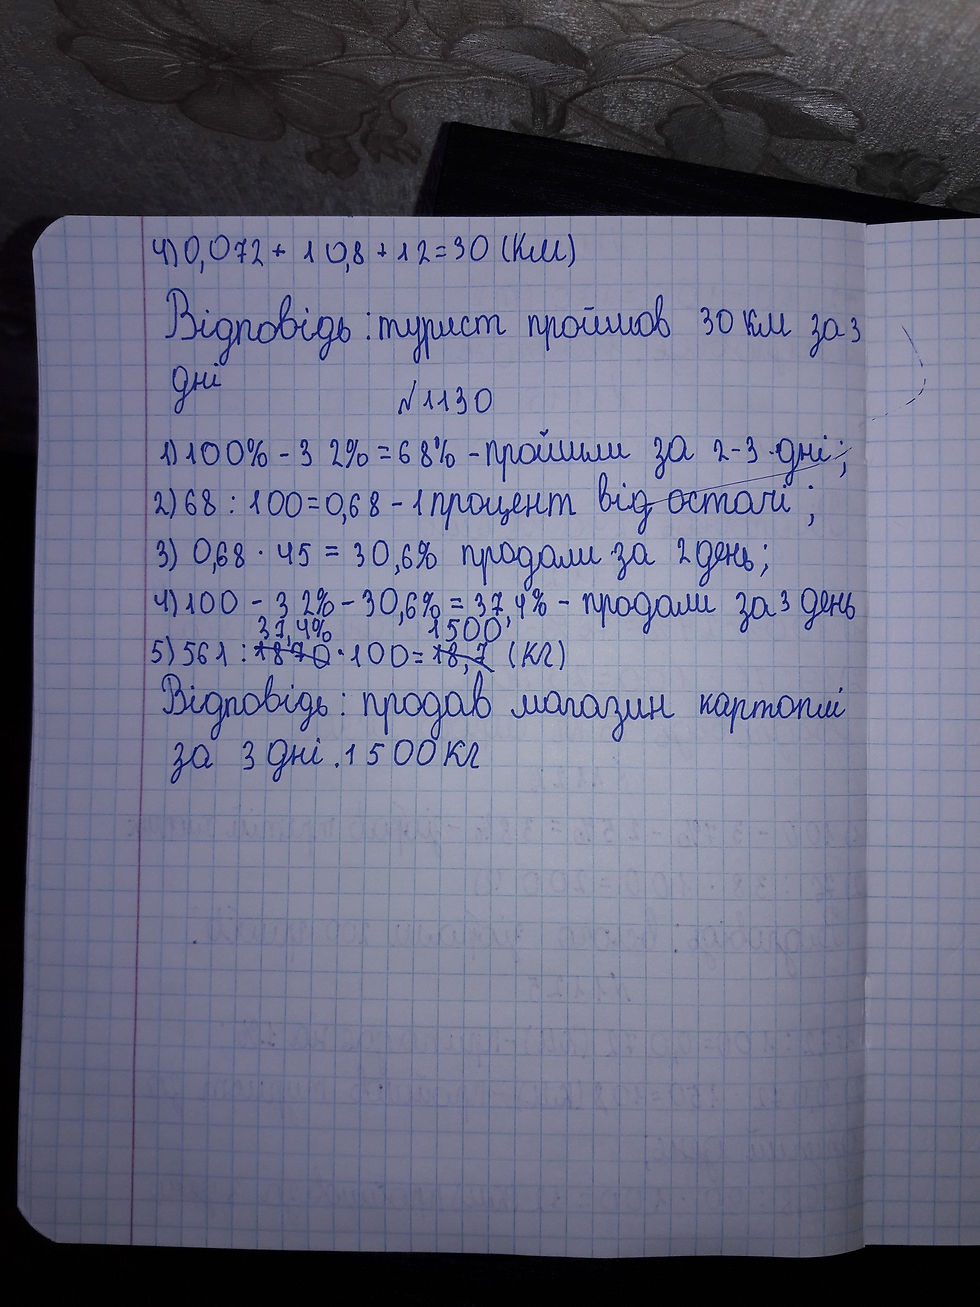 4) 0,072 + 10,8 + 12 = 30 (км)
Відповідь : турист пройшов 30 км за 3
дні
№1130
1) 100% - 32% = 68% - пройшли за 2-3 дні;
2) 68 : 100 = 0,68 - 1 процент від остачі ;
3) 0,68 · 45 = 30,6% продали за 2 день;
4) 100 - 32% - 30,6% = 37,4% - продали за 3 день
37,4% 1500
5) 561 : 1870 · 100 = 18,7 (кг)
Відповідь : продав магазин картоплі
за 3 дні . 1500 кг